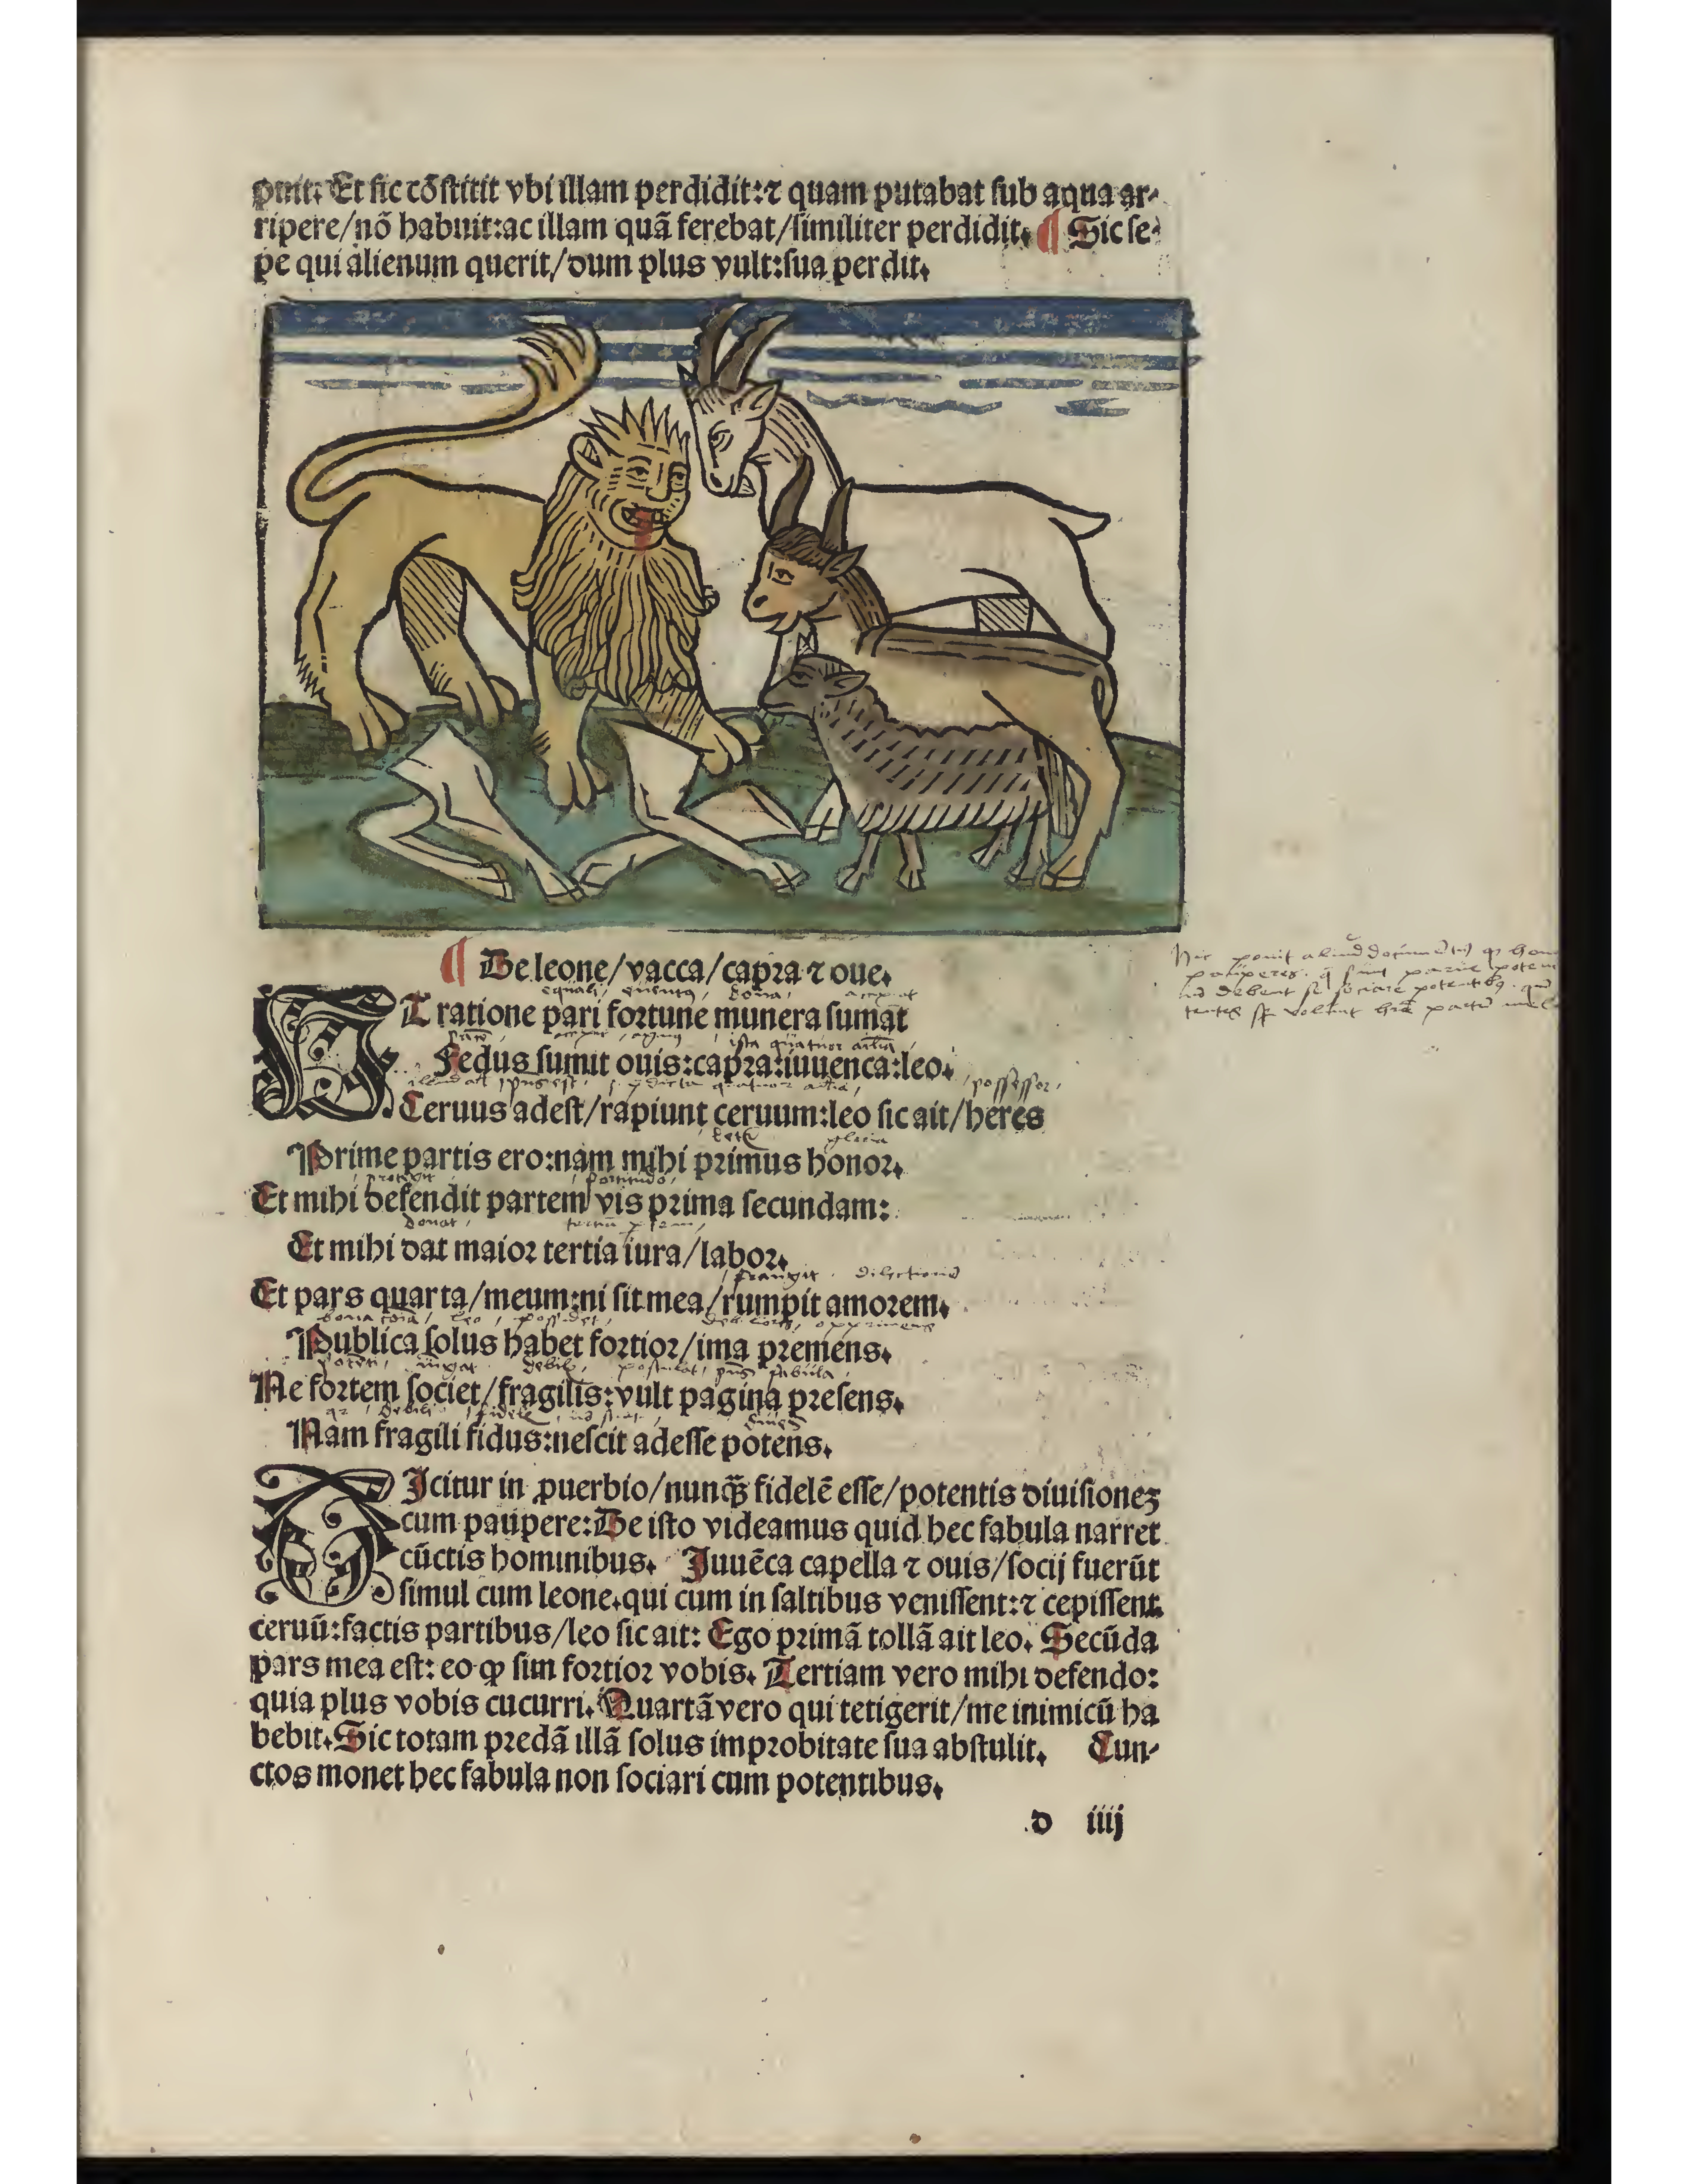 puit. Et sic cōstitit vbi illam perdidit:⁊ quam putabat sub aqua ar-
ripere/nō habuit:ac illam quā ferebat/similiter perdidit. ¶ Sic se-
pe qui alienum querit/dum plus vult:sua perdit.
¶ De leone/vacca/capra ⁊ oue.
equali, dona, accipiāt
ET ratione pari fortune munera sumāt
ista quatuor aīalia,
Fedus sumit ouis:capra:iuuenca:leo.
possessor,
Ceruus adest/rapiunt ceruum:leo sic ait/heres
gloria
Prime partis ero:nam mihi primus honor.
protegit fortitudo,
Et mihi defendit partem vis prima secundam:
donat,
Et mihi dat maior tertia iura/labor.
frangit dilectionē
Et pars quarta/meum:ni sit mea/rumpit amorem.
leo, possidet, opprimens
Publica solus habet fortior/ima premens.
debilis, postulat, fabula,
Ne fortem societ/fragilis:vult pagina presens.
debili fidelis
Nam fragili fidus:nescit adesse potens.
DIcitur in ꝓuerbio/nunqᷓꝫ fidelē esse/potentis diuisionez
cum paupere:De isto videamus quid hec fabula narret
cūctis hominibus. Juuēca capella ⁊ ouis/socij fuerūt
simul cum leone.qui cum in saltibus venissent:⁊ cepissent
ceruū:factis partibus/leo sic ait: Ego primā tollā ait leo. Secūda
pars mea est: eo ꝙ sim fortior vobis. Tertiam vero mihi defendo:
quia plus vobis cucurri. Quartā vero qui tetigerit/me inimicū ha
bebit. Sic totam predā illā solus improbitate sua abstulit. Cun-
ctos monet hec fabula non sociari cum potentibus.
d iiij
Hic ponit aliud documentū ꝙ
pauperes
debent se sociare potentibꝫ
volunt